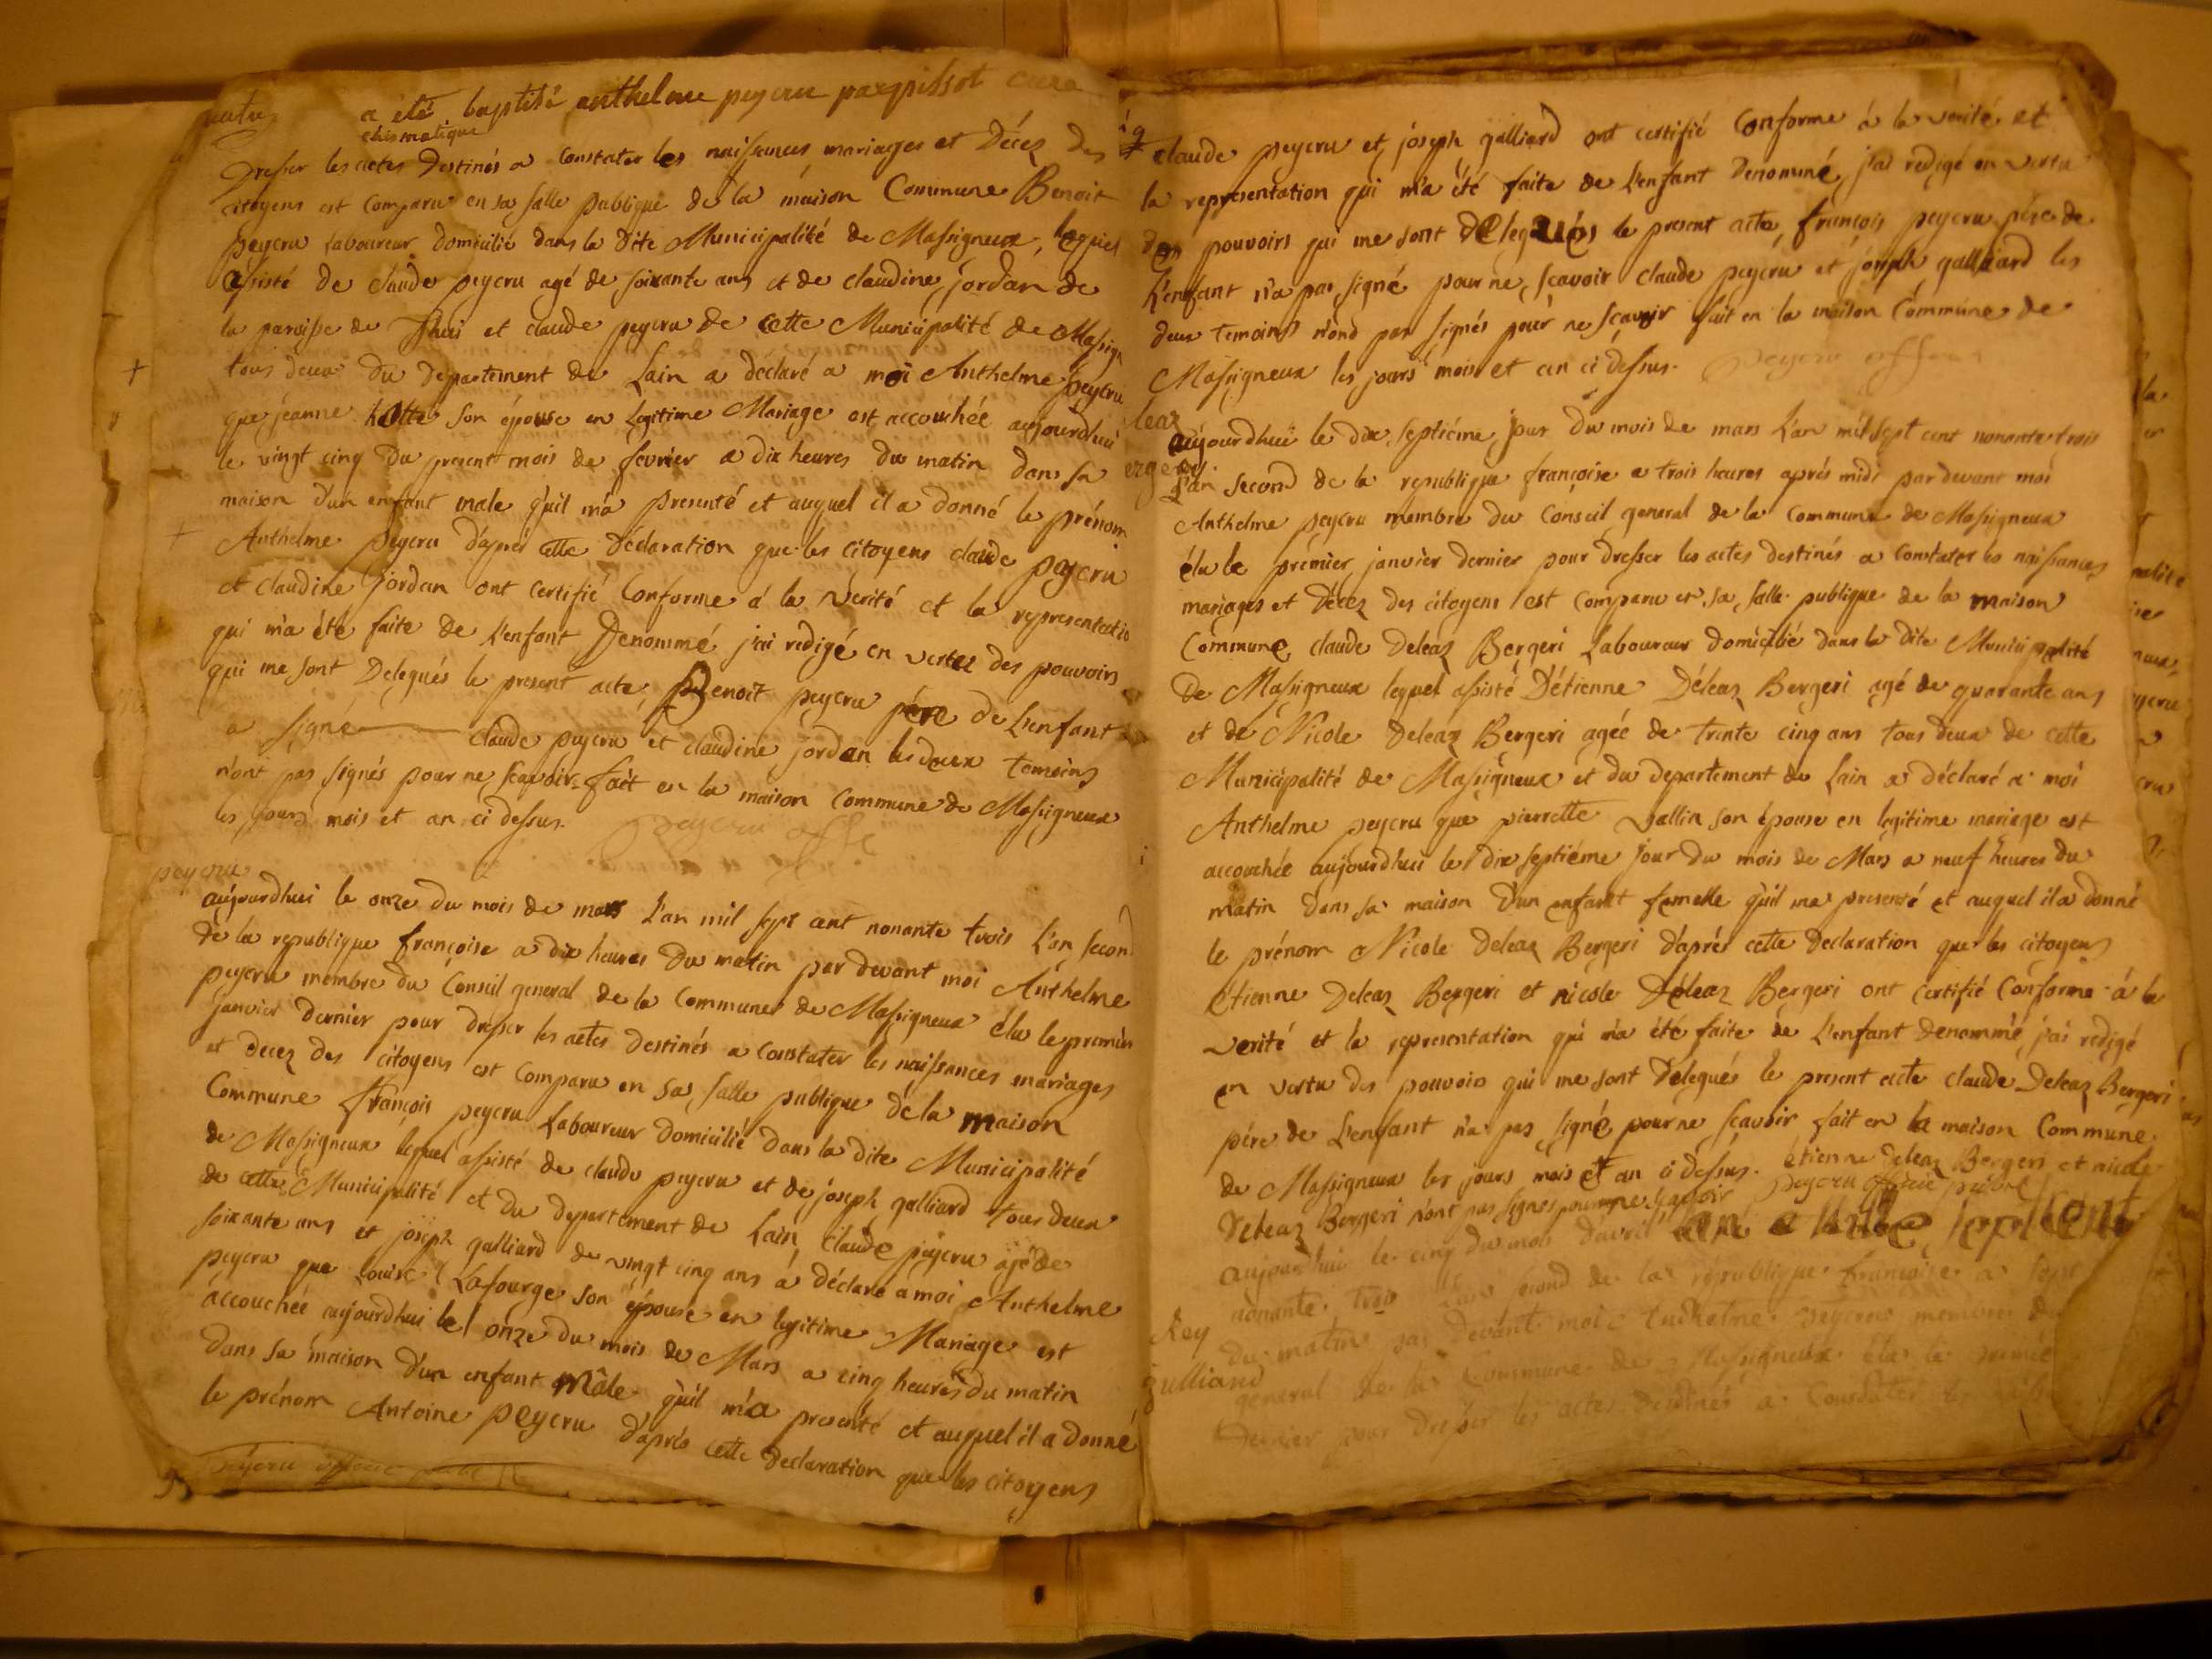 a été baptisé anthelme peyeru par pilssot curé
chismatique
Dresser les actes Destinés a Constater les naissances mariages et Décez Des
citoyens est Comparu en sa salle publique de la maison Commune Benoit
peyeru Laboureur Domicilié dans la dite Municipalité de Massigneux, lequel
assisté de claude peyeru agé de soixante ans et de claudine jordan de
la paroisse de et claude peyeru de cette Municipalité de Massign
tous deux du departement de Lain a déclaré a moi Anthelme peyeru
que jeanne son épouse en Legitime Mariage est accouchée aujourdhui
le vingt cinq du present mois de fevrier a dix heures du matin dans sa
maison d'un enfant male quil m'a presenté et auquel il a donné le prénom
Anthelme peyeru d'aprés cette déclaration que les citoyens claude peyeru
et claudine jordan ont certifié Conforme á la Verité et la representatio
qui m'a été faite de L'enfant Denommé j'ai redigé en vertu des pouvoirs
qui me sont Delegués le present acte, Benoit peyeru pére de L'enfant
a signé claude peyeru et claudine jordan les deux temoins
n'ont pas signés pour ne scavoir fait en la maison Commune de Massigneux
les jours mois et an ci dessus. peyeru off
peyeru
aujourdhui le onze du mois de mars L'an mil sept cent nonante trois L'an second
de la republique françoise a dix heures du matin par devant moi Anthelme
peyeru membre du Conseil general de la Commune de Massigneux élu le premier
janvier dernier pour dresser les actes destinés a constater les naissances mariages
et decez des citoyens est comparu en sa salle publique de la maison
Commune françois peyeru Laboureur Domicilié dans la dite Municipalité
de Massigneux lequel assisté de claude peyeru et de joseph galliard tous deux
de cette Municipalité et du departement de Lain, claude peyeru agé de
soixante ans et joseph galliard de vingt cinq ans a déclaré a moi Anthelme
peyeru que Louise Lafourge son épouse en legitime Mariage est
accouchée aujourdhui le onze du mois de Mars a cinq heures du matin
dans sa maison d'un enfant mâle qu'il m'a presenté et auquel il a donné
le prénom Antoine peyeru d'aprés cette declaration que les citoyens
peyeru officié public
claude peyeru et joseph galliard ont certifié Conforme á la verité et
la representation qui m'a été faite de L'enfant Denommé, j'ai redigé en vertu
des pouvoirs qui me sont delegués le present acte, françois peyeru pére de
L'enfant n'a pas signé pour ne scavoir claude peyeru et joseph galliard les
deux temoins n'ond pas signés pour ne scavoir fait en la maison Commune de
Massigneux les jours mois et an ci dessus. peyeru off
aujourdhui le dix septiéme jour du mois de mars L'an mil sept cent nonante trois
L'an second de la republique françoise a trois heures aprés midi par devant moi
Anthelme peyeru membre du Conseil general de la Commune de Massigneux
élu le prémier janvier dernier pour dresser les actes destinés a constater les naissances
mariages et Décez des citoyens est comparu en sa salle publique de la maison
Commune claude Deleaz Bergeri Laboureur Domicilié dans la dite Municipalité
de Massigneux lequel assisté D'étienne Déleaz Bergeri agé de quarante ans
et de Nicole Deleaz Bergeri agée de trente cinq ans tous deux de cette
Municipalité de Massigneux et du departement de Lain a déclaré a moi
Anthelme peyeru que pierrette Vallin son épouse en legitime mariage est
accouchée aujourdhui le dix septiéme jour du mois de Mars a neuf heures du
matin dans sa maison d'un enfant femelle qu'il ma presenté et auquel il a donné
le prénom Nicole Deleaz Bergeri d'aprés cette declaration que les citoyens
étienne Deleaz Bergeri et nicole Déleaz Bergeri ont certifié Conforme á la
verité et la representation qui m'a été faite de L'enfant denommé, j'ai redigé
en vertu des pouvoirs qui me sont Delegués le present acte claude Deleaz Bergeri
pére de L'enfant n'a pas signé pour ne scavoir fait en la maison Commune
de Massigneux les jours mois et an ci dessus. étienne Deleaz Bergeri et nicole
Deleaz Bergeri n'ont pas signés pour ne scavoir peyeru officié public
aujourdhui le cinq du mois d'avril an mille sept cent
nonante trois L'an second de la république françoise a sept
Rey
du matin par devant moi Anthelme peyeru membre du
galliard
general de la Commune de Massigneux élu le premier
Dernier pour Dresser les actes Destinés a Constater les